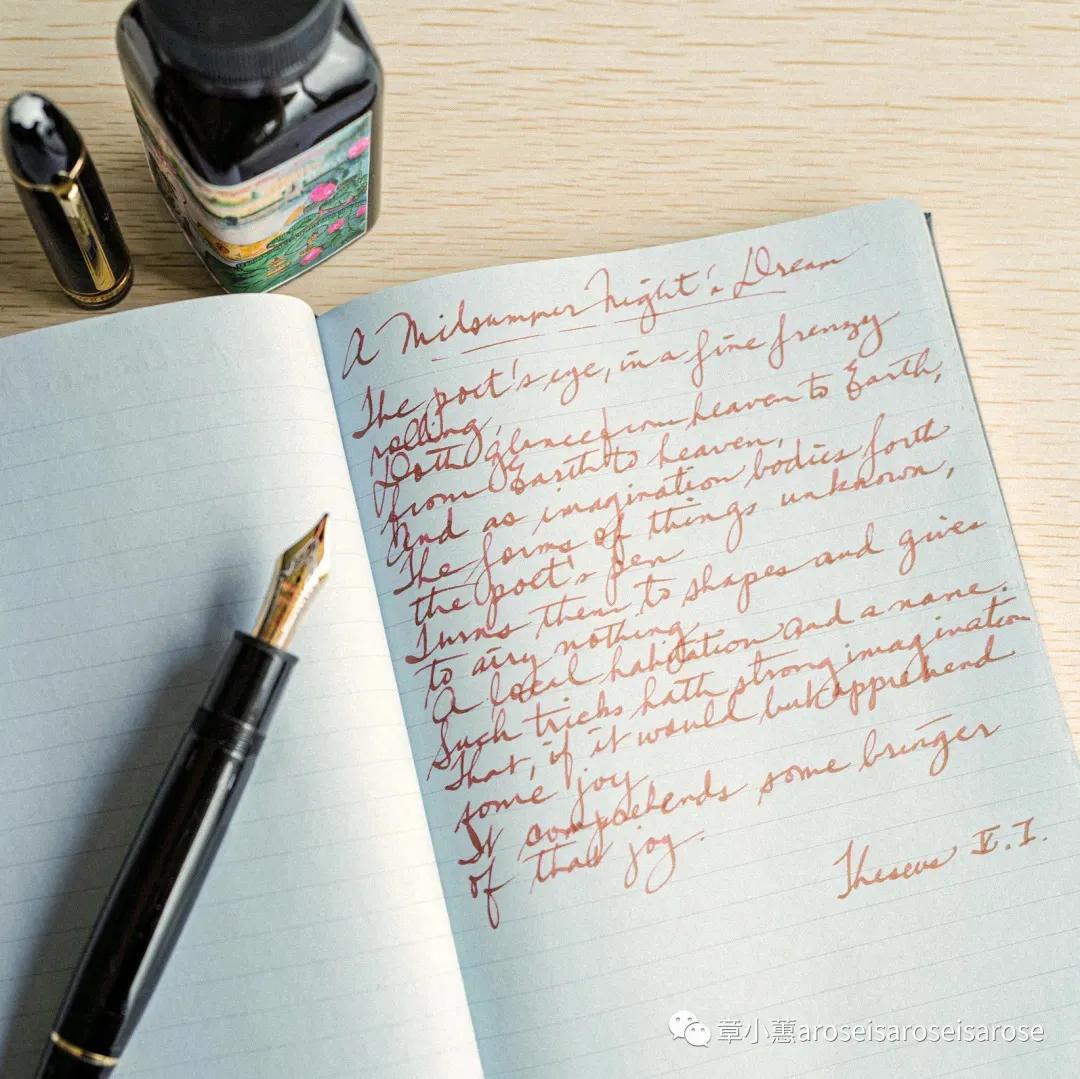 A Midsummer Night's Dream
The poet's eye, in a fine frenzy
rolling,
Doth glance from heaven to Earth,
from Earth to heaven,
And as imagination bodies forth
The forms of things unknown,
the poet's pen
Turns them to shapes and gives
to airy nothing
A local habitation and a name.
Such tricks hath strong imagination
That, if it would but apprehend
some joy
It comprehends some bringer
of that joy.
Theseus V.I.
章小蕙aroseisaroseisarose